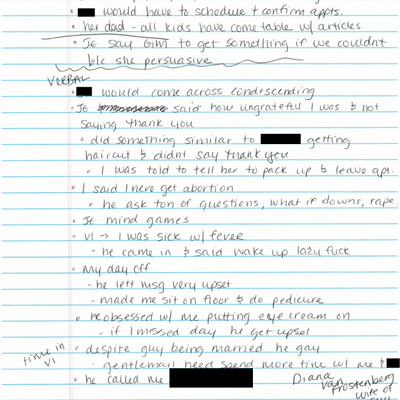 • would have to schedule + confirm appts.
• her dad - all kids have come table w/ articles
• JE say GM to get something if we couldn't
b/c she persuasive
VERBAL
• would come across condescending
• JE said how ungrateful I was & not
saying thank you
• did something similar to getting
haircut & didnt say thank you
• I was told to tell her to pack up & leave apt.
• I said I never get abortion
• he ask ton of questions, what if downs, rape
• JE mind games
• VI → I was sick w/ fever
- he came in & said wake up lazy fuck
• My day off
- he left msg very upset
- made me sit on floor & do pedicure
• he obsessed w/ me putting eye cream on
- if I missed day he get upset
time in VI
• despite guy being married he gay
- gentleman need spend more time w/ me &
• he called me
Diana
van
Frostenberg
wife of